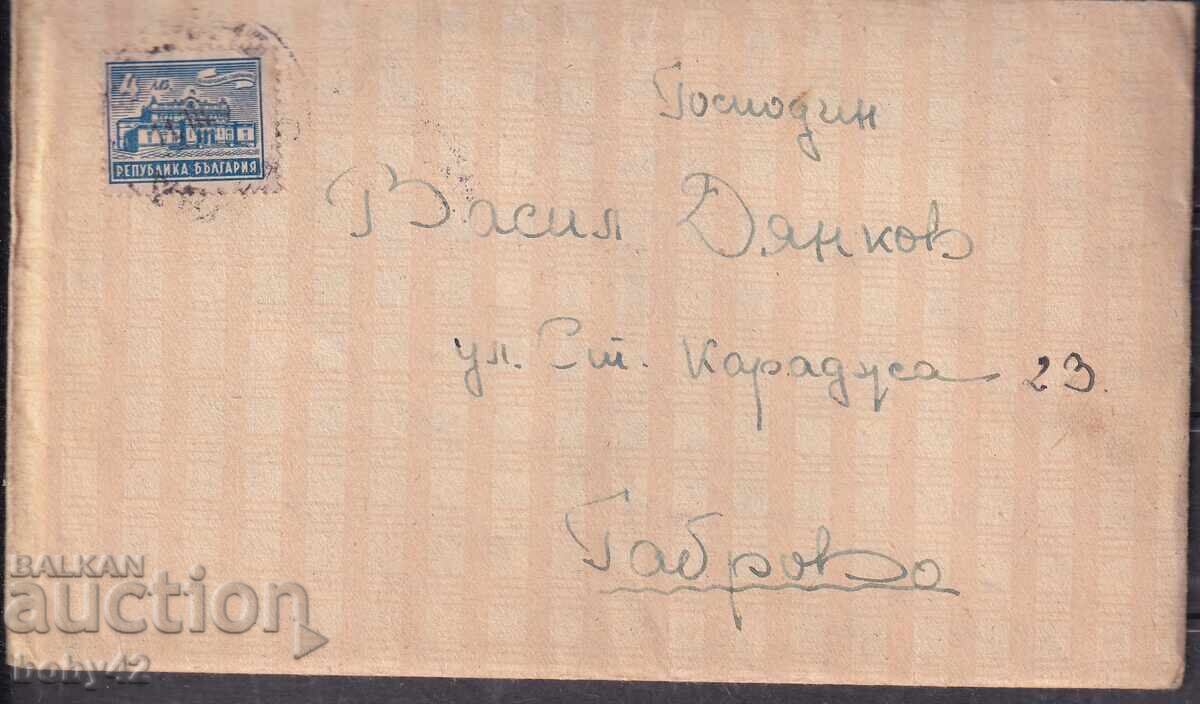 4 лв.
РЕПУБЛИКА БЪЛГАРИЯ
Господин
Васил Дянков
ул. Ст. Карадуса 23.
Габрово
BALKAN
auction
boby42